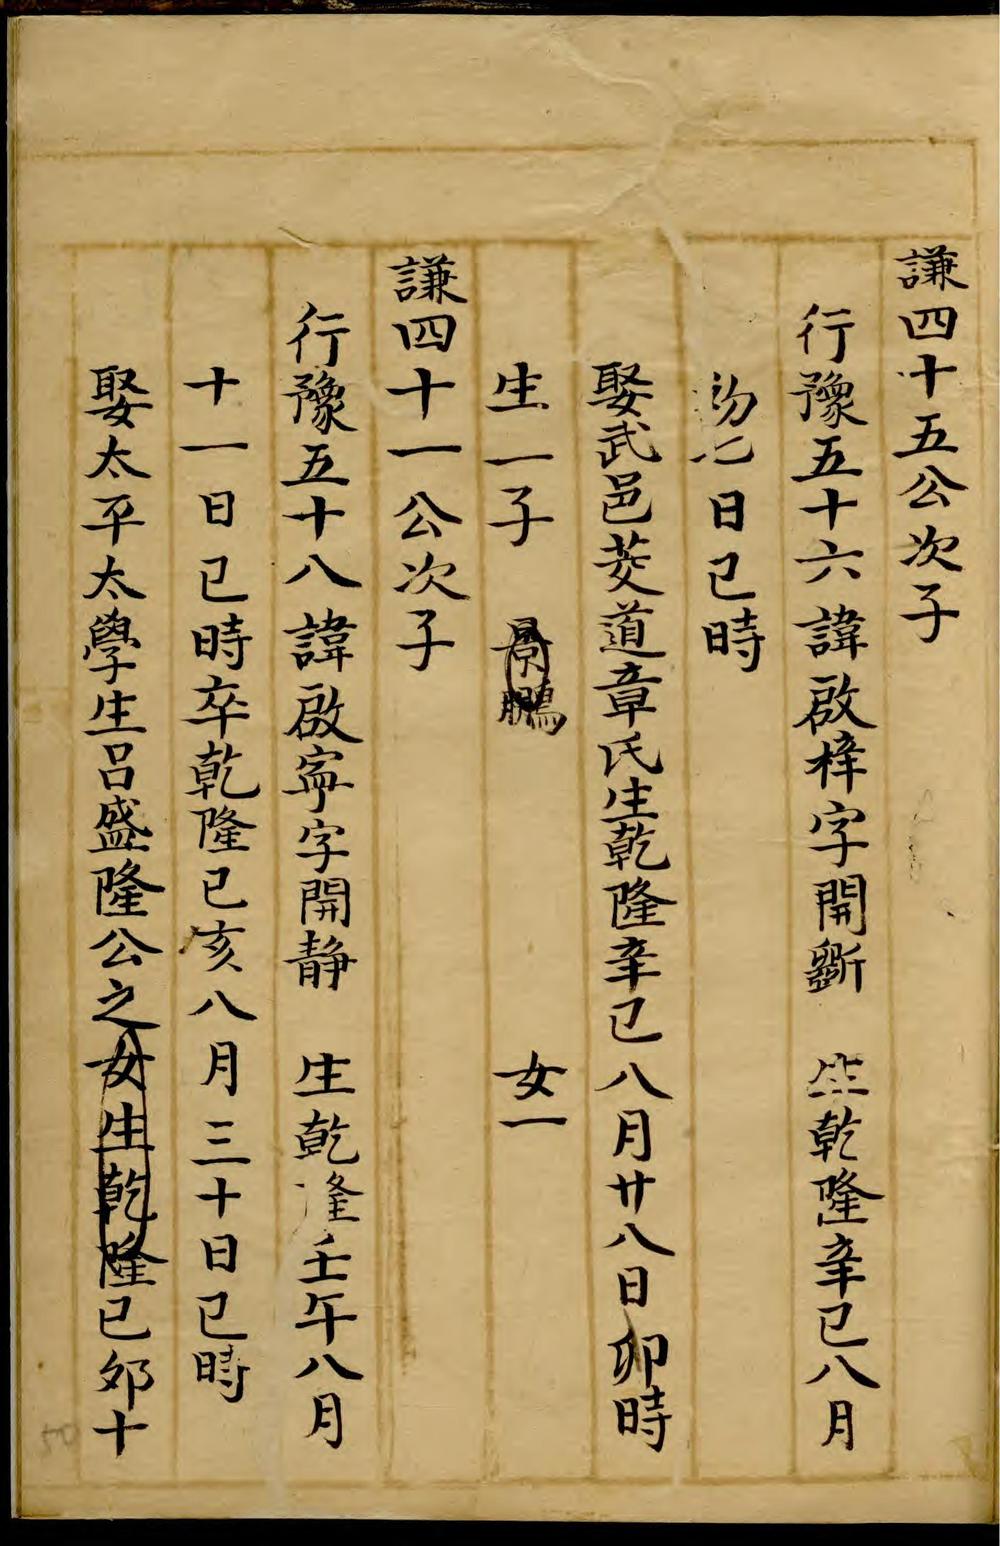 謙四十五公次子
行豫五十六諱啟梓字開斵 生乾隆辛巳八月
初七日巳時
娶武邑茭道章氏生乾隆辛巳八月廿八日卯時
生一子 景鵬 女一
謙四十一公次子
行豫五十八諱啟寧字開静 生乾隆壬午八月
十一日巳時卒乾隆己亥八月三十日巳時
娶太平太學生呂盛隆公之女生乾隆己夘十